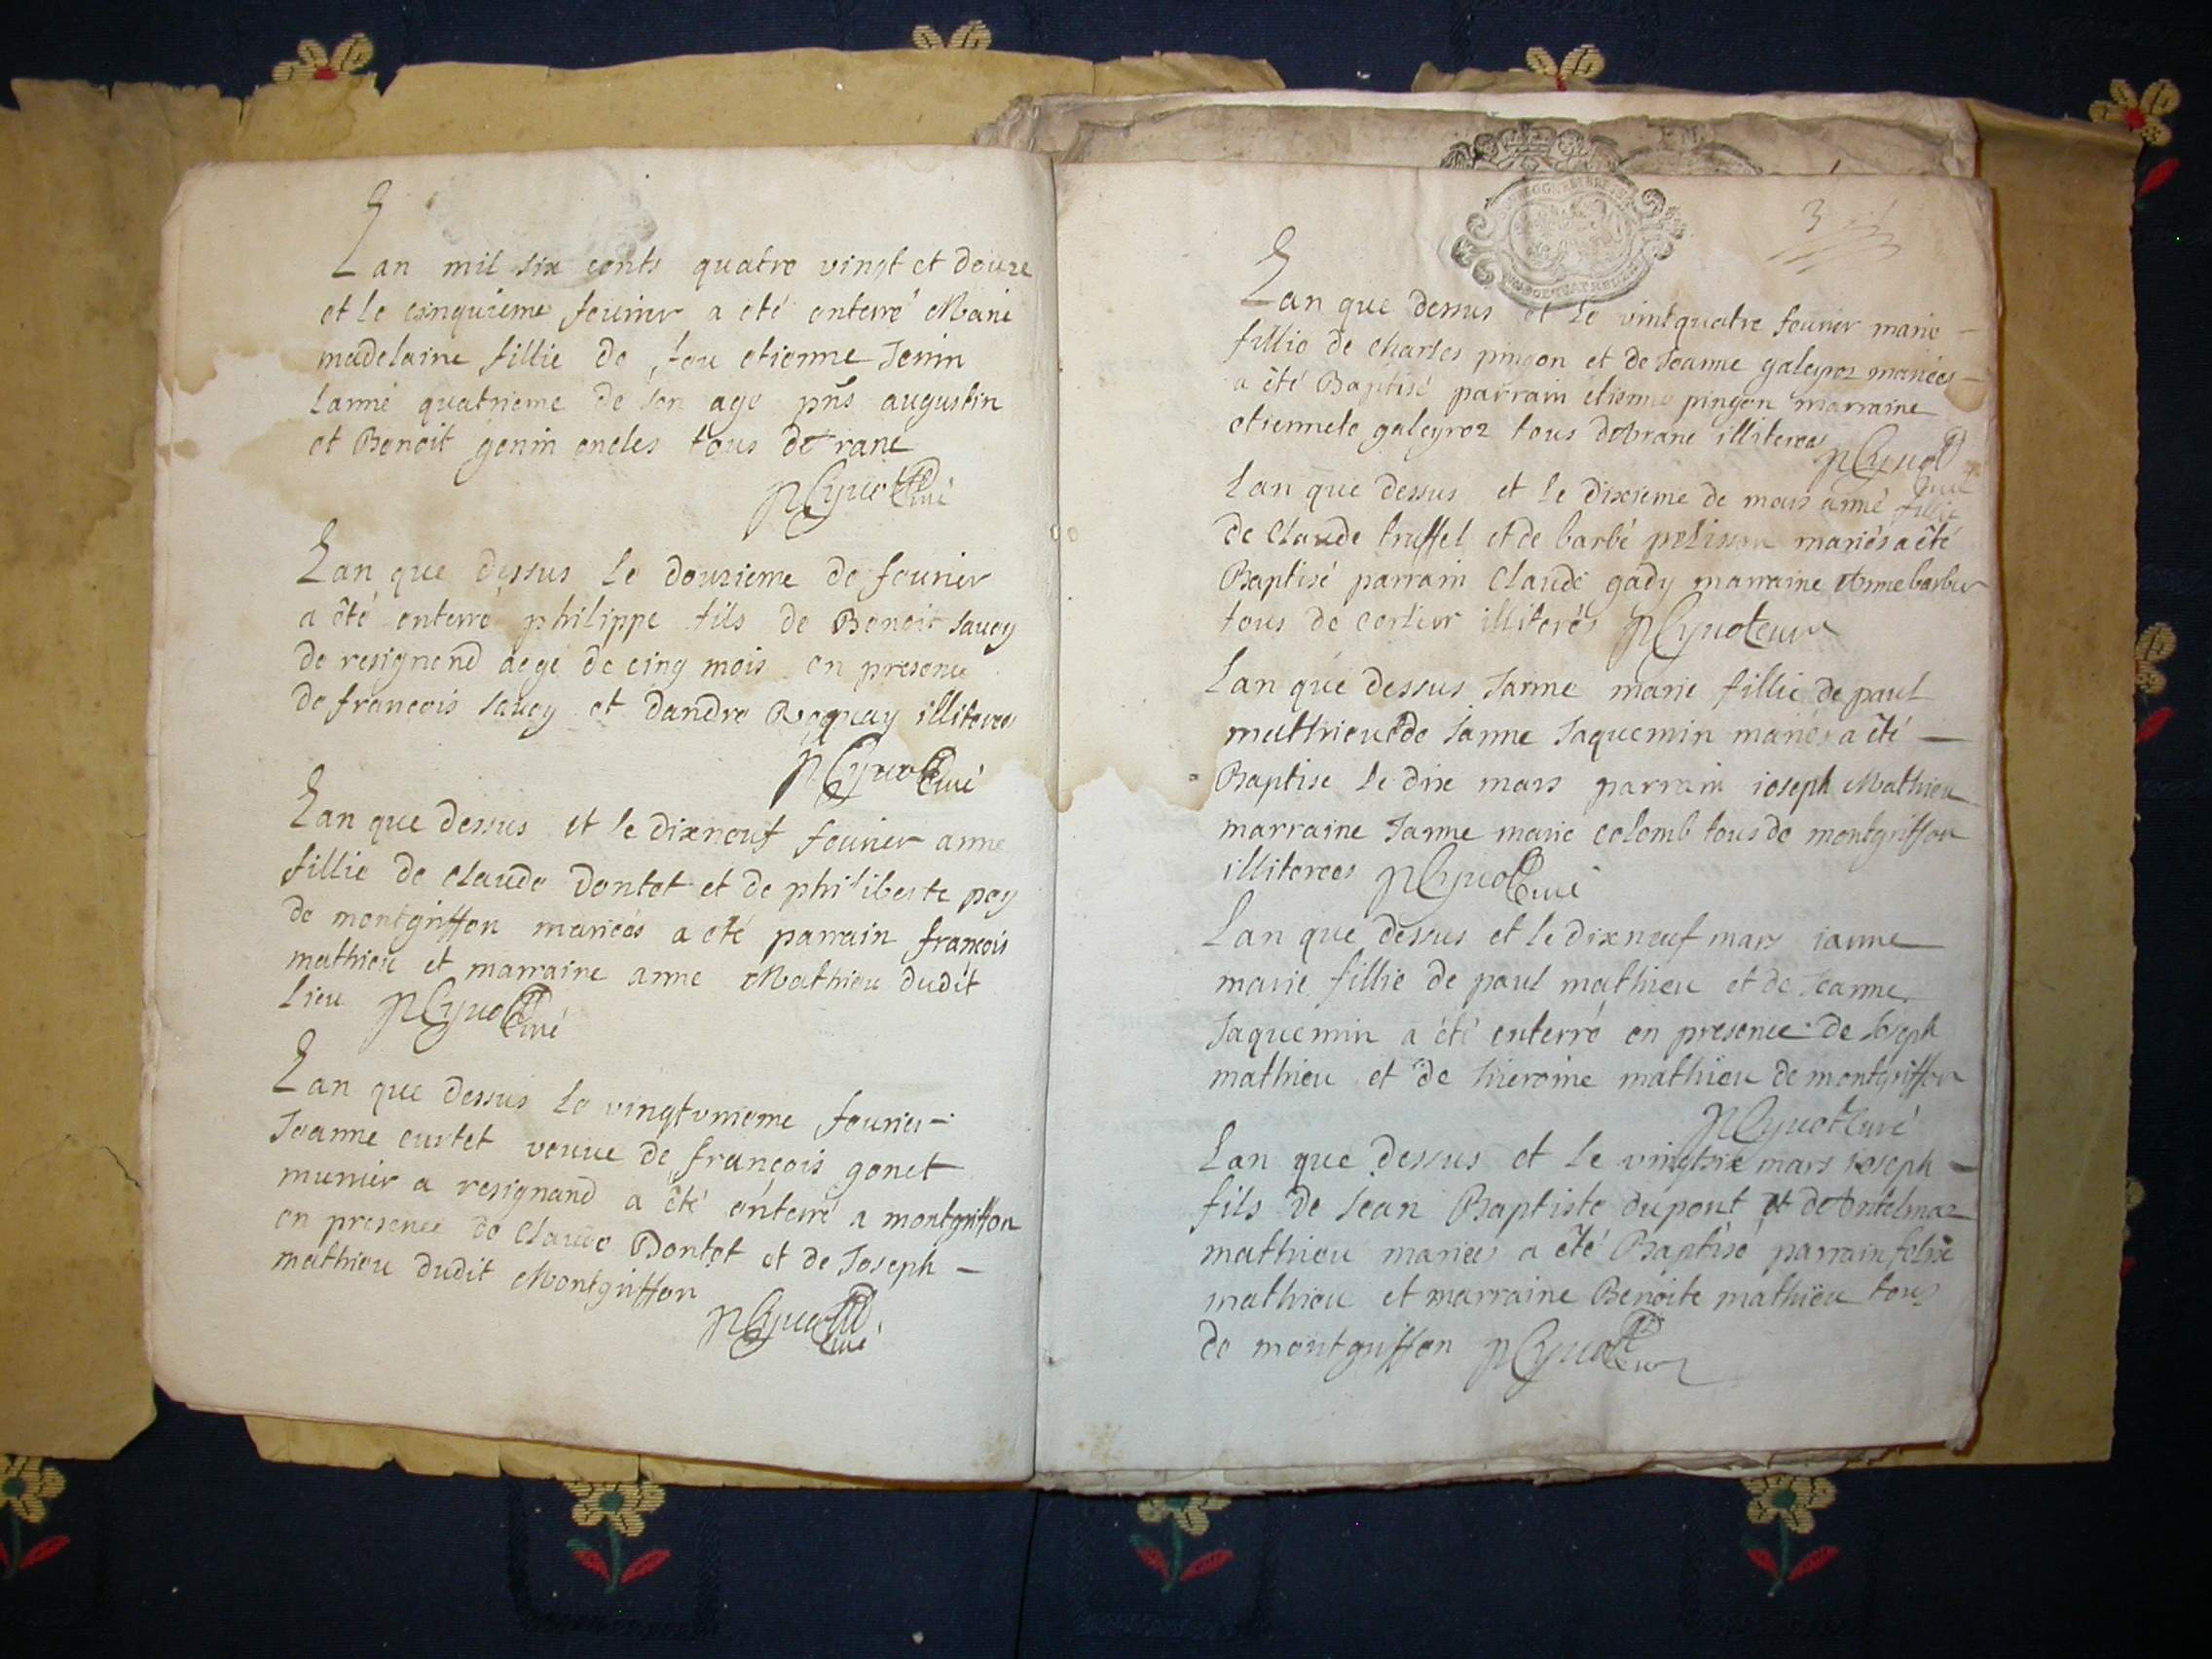 Lan mil six cents quatre vingt et douze
et le cinquieme feurier a eté enterré Marie
madelaine fillie de feu etienne Jenin
lanné quatrieme de son age pñs augustin
et Benoit genin oncles tous de rane
curé
Lan que dessus le douzieme de feurier
a êté enterré philippe fils de Benoit sauey
de resignend aegé de cinq mois en presence
de francois sauey et dandre illiterees
curé
Lan que dessus et le dixneuf feurier anne
fillie de Claude Dontet et de philiberte pey
de montgriffon mariees a eté parrain francois
mathieu et marraine anne Mathieu dudit
lieu curé
Lan que dessus le vingtvnieme feurier
Jeanne curtet veuue de françois gonet
munier a resignand a êté enterré a montgriffon
en presence de Claude Dontet et de Joseph
mathieu dudit Montgriffon
curé
3
Lan que dessus et le vintquatre feurier marie
fillie de Charles pingon et de Jeanne galeyroz mariées
a êté Baptisé parrain etienne pingon marraine
etiennete galeyroz tous illiterees
curé
Lan que dessus et le dixieme de mars anne fillie
de Claude truffel et de barbé pelisson mariés a êté
Baptisé parrain Claude gady marraine Anne barbier
tous de Corlier illiterés curé
Lan que dessus Janne marie fillie de paul
mathieu et de Janne Jaquemin mariés a êté
Baptise le dix mars parrain ioseph Mathieu
marraine Janne marie Colomb tous de montgriffon
illiterees curé
Lan que dessus et le dixneuf mars ianne
marie fillie de paul mathieu et de Jeanne
Jaquemin a êté enterré en presence de Joseph
mathieu et de hieroime mathieu de montgriffon
curé
Lan que dessus et le vingtsix mars ioseph
fils de Jean Baptiste dupont et de Antelmaz
mathieu mariees a êté Baptisé parrain felix
mathieu et marraine Benoite mathieu tous
de montgriffon curé